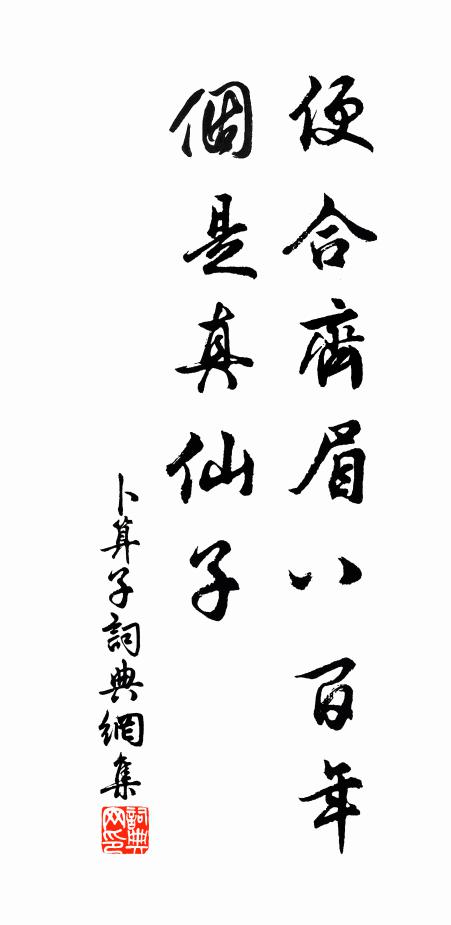 便合齊眉八百年
個是真仙子
卜算子詞典網集
詞典网印